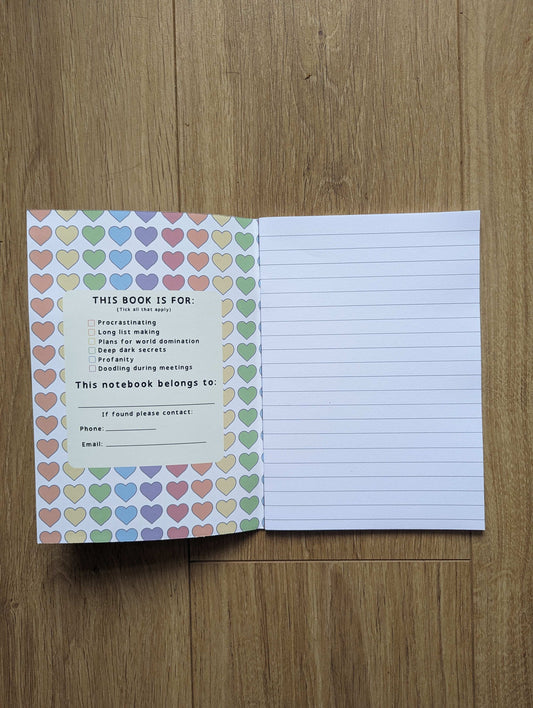 THIS BOOK IS FOR:
(Tick all that apply)
Procrastinating
Long list making
Plans for world domination
Deep dark secrets
Profanity
Doodling during meetings
This notebook belongs to:
If found please contact:
Phone:
Email: